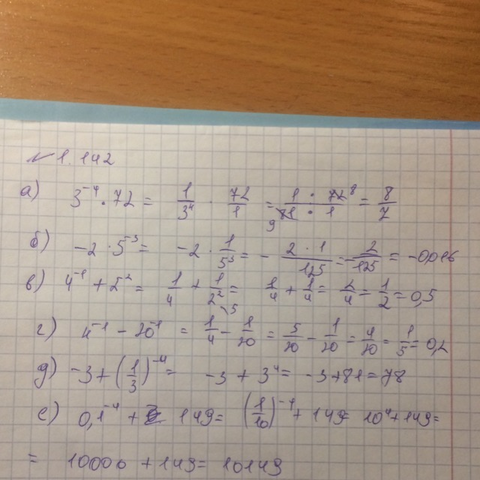 № 1.142
а) 3⁻⁴ · 72 = 1/3⁴ · 72/1 = 1 · 72 8/9 81 · 1 = 8/7
б) -2 · 5⁻³ = -2 · 1/5³ = - 2 · 1/125 = - 2/125 = -0,016
в) 4⁻¹ + 2⁻² = 1/4 + 1/2² = 1/4 + 1/4 = 2/4 = 1/2 = 0,5
г) 4⁻¹ - 20⁻¹ = 1/4 - 1/20 = 5/20 - 1/20 = 4/20 = 1/5 = 0,2
д) -3 + (1/3)⁻⁴ = -3 + 3⁴ = -3 + 81 = 78
е) 0,1⁻⁴ + 149 = (1/10)⁻⁴ + 149 = 10⁴ + 149 =
= 10000 + 149 = 10149